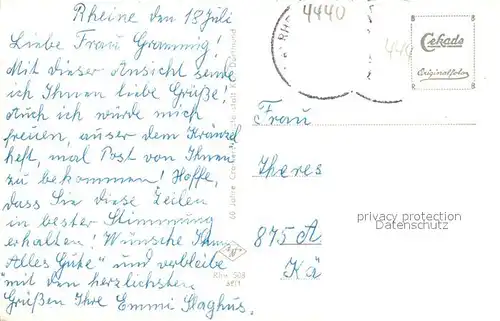 Rheine den 18 Juli
Liebe Frau Grammig!
Mit dieser Ansicht sende
ich Ihnen liebe Grüße!
Auch ich würde mich
freuen, auser dem Kränzel
heft, mal Post von Ihnen
zu bekommen! Hoffe,
dass Sie diese Zeilen
in bester Stimmung
erhalten! Wünsche Ihnen
"Alles Gute" und verbleibe
mit den herzlichsten
Grüßen Ihre Emmi Slaghus.
60 Jahre Dortmund
Rhn 508
4440
RH
Cekade
Originalfoto
Frau
Theres
875 A
Kä
privacy protection
Datenschutz